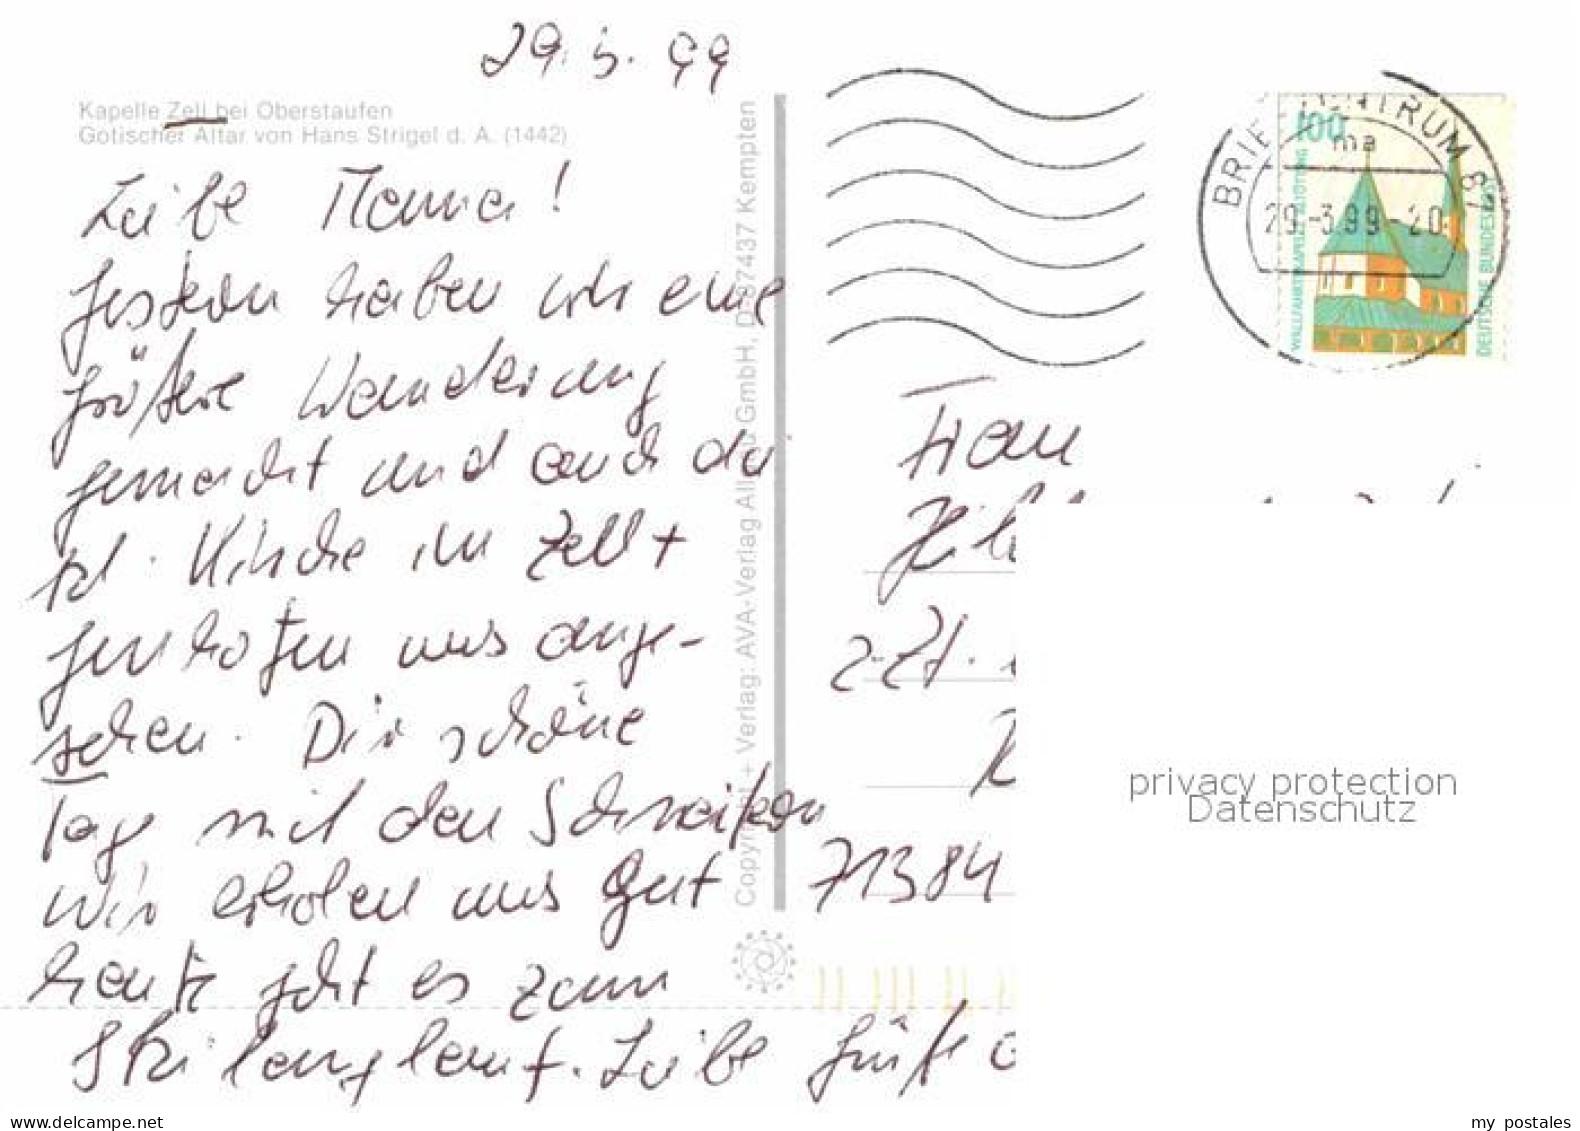 29. 3. 99
Kapelle Zell bei Oberstaufen
Gotischer Altar von Hans Strigel d. A. (1442)
Liebe Mama!
gestern haben wir eine
größere Wanderung
gemacht und auch die
kl. Kirche in Zell +
genhofen uns ange-
sehen. Dir schöne
Tage mit den
wir erholen uns gut
heute geht es zum
Skilanglauf. Liebe Grüße
Copyright + Verlag: AVA-Verlag Allgäu GmbH, D-87437 Kempten
BRIEFZENTRUM 87
ma
29.-3.99-20
100
WALLFAHRTSKAPELLE ALTÖTTING
DEUTSCHE BUNDESPOST
Frau
z. Zt.
71384
privacy protection
Datenschutz
www.delcampe.net
my postales